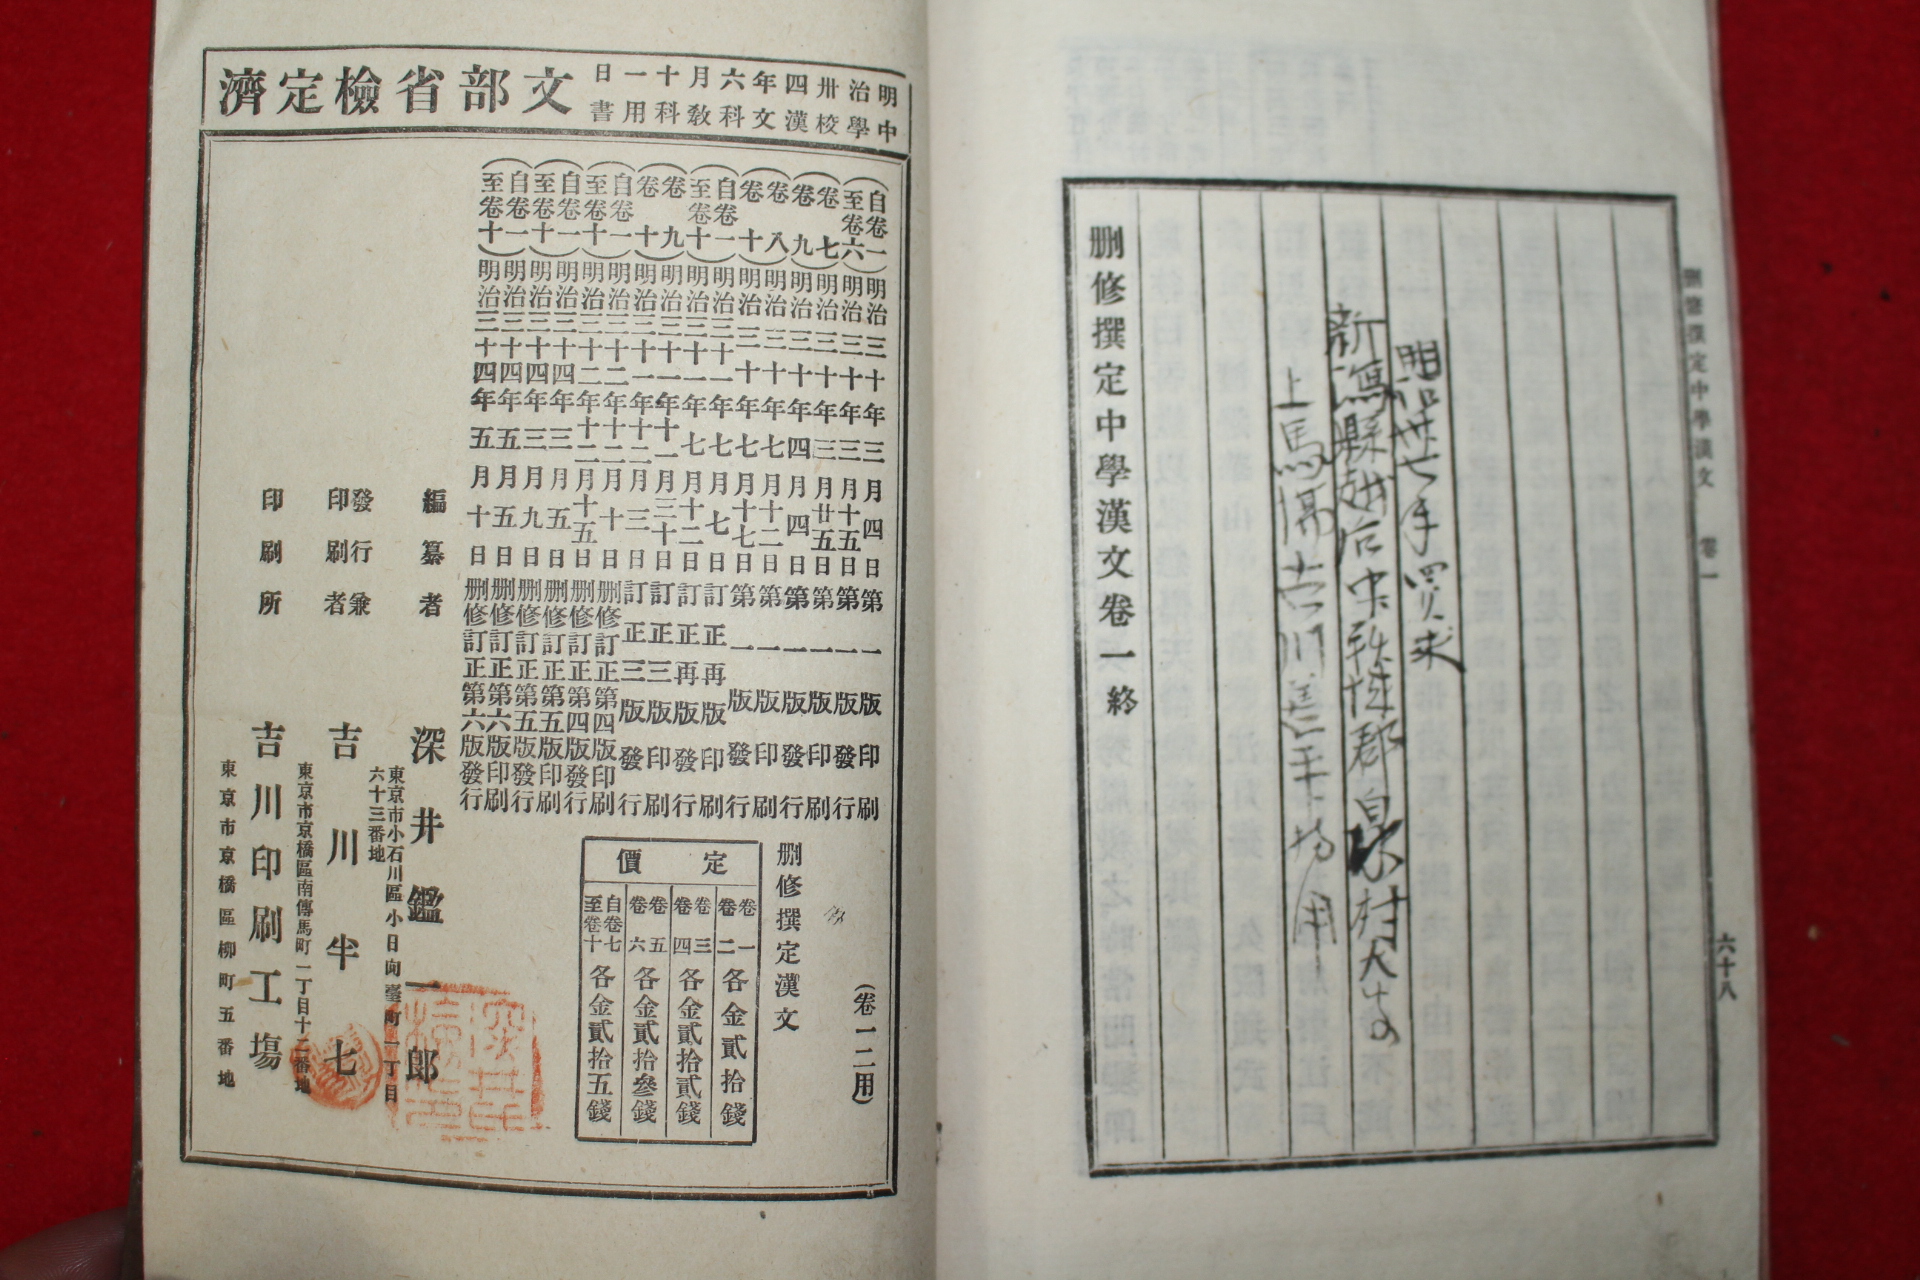 刪修撰定中學漢文 卷一
六十八
明治卅七年買求
新潟縣越后中
上馬場吉川
刪修撰定中學漢文卷一終
明治卅四年六月十一日
中學校漢文科敎科用書
文部省檢定濟
（自卷一至卷六）
明治三十年三月四日第一版印刷
明治三十年三月十五日第一版發行
（卷七）
明治三十年三月廿五日第一版印刷
（卷九）
明治三十年四月四日第一版發行
（卷八）
明治三十年七月十二日第一版印刷
（卷十）
明治三十年七月十七日第一版發行
（自卷一至卷十）
明治三十一年七月七日訂正再版印刷
明治三十一年七月十二日訂正再版發行
（卷九）
（卷十）
明治三十一年十一月三十日訂正三版印刷
明治三十一年十二月三日訂正三版發行
（自卷一至卷十）
明治三十二年十二月十日刪修訂正第四版印刷
明治三十二年十二月十五日刪修訂正第四版發行
（自卷一至卷十）
明治三十四年三月五日刪修訂正第五版印刷
明治三十四年三月九日刪修訂正第五版發行
（自卷一至卷十）
明治三十四年五月五日刪修訂正第六版印刷
明治三十四年五月十日刪修訂正第六版發行
（卷一二用）
刪修撰定漢文
定價
卷一卷二各金貳拾錢
卷三卷四各金貳拾貳錢
卷五卷六各金貳拾參錢
自卷七至卷十各金貳拾五錢
編纂者 深井鑑一郎
東京市小石川區小日向臺町一丁目
六十三番地
發行兼印刷者 吉川半七
東京市京橋區南傳馬町一丁目十二番地
印刷所 吉川印刷工塲
東京市京橋區柳町五番地